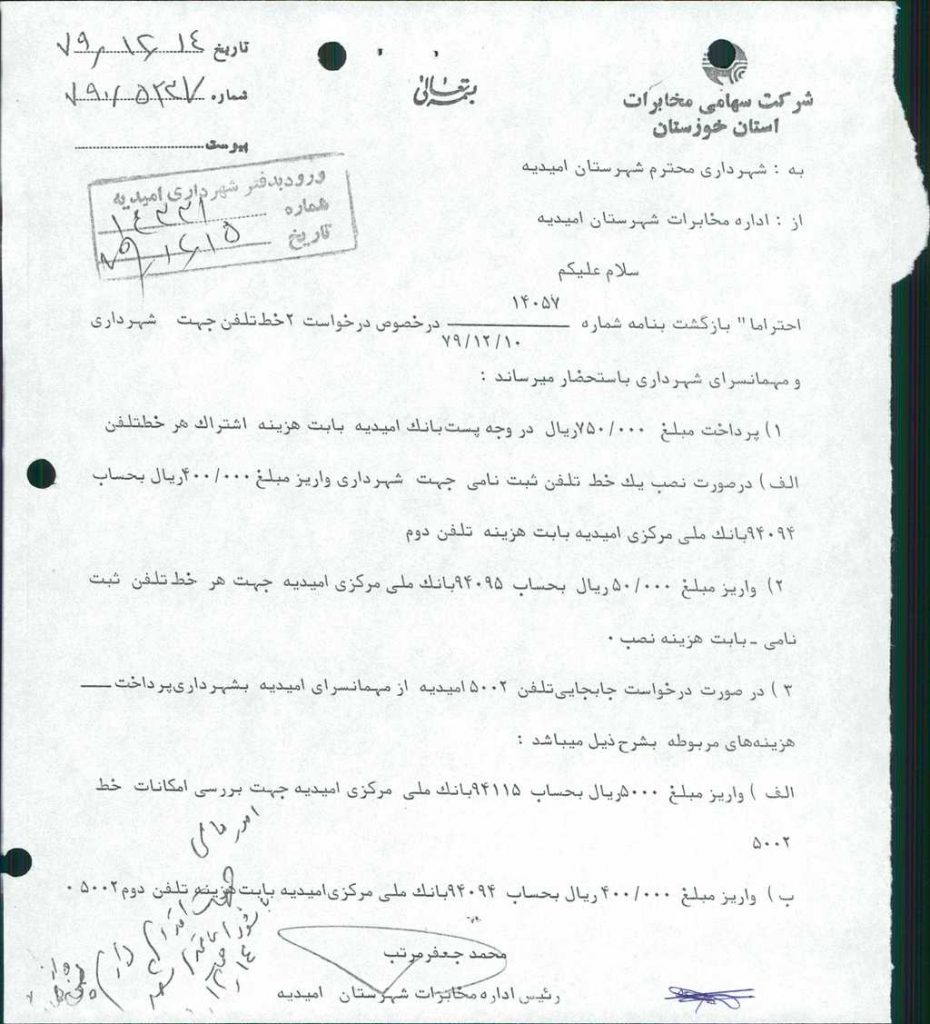 بسمه تعالی
شرکت سهامی مخابرات
استان خوزستان
تاریخ ۷۹/۱۲/۱۴
شماره ۷۹۰/۵۳۳۷
پیوست
ورود بدفتر شهرداری امیدیه
شماره ۱۴۳۳۱
تاریخ ۷۹/۱۲/۱۵
به : شهرداری محترم شهرستان امیدیه
از : اداره مخابرات شهرستان امیدیه
سلام علیکم
احتراما" بازگشت بنامه شماره ۱۴۰۵۷ ۷۹/۱۲/۱۰ درخصوص درخواست ۲ خط تلفن جهت شهرداری
و مهمانسرای شهرداری باستحضار میرساند :
۱) پرداخت مبلغ ۷۵۰/۰۰۰ریال در وجه پست بانك امیدیه بابت هزینه اشتراك هر خطتلفن
الف) درصورت نصب یك خط تلفن ثبت نامی جهت شهرداری واریز مبلغ ۴۰۰/۰۰۰ریال بحساب
۹۴۰۹۴بانك ملی مرکزی امیدیه بابت هزینه تلفن دوم
۲) واریز مبلغ ۵۰/۰۰۰ ریال بحساب ۹۴۰۹۵بانك ملی مرکزی امیدیه جهت هر خط تلفن ثبت
نامی ـ بابت هزینه نصب ۰
۳) در صورت درخواست جابجایی تلفن ۵۰۰۲ امیدیه از مهمانسرای امیدیه بشهرداری پرداخت ــ
هزینه‌های مربوطه بشرح ذیل میباشد :
الف ) واریز مبلغ ۵۰۰۰ریال بحساب ۹۴۱۱۵بانك ملی مرکزی امیدیه جهت بررسی امکانات خط
۵۰۰۲
ب ) واریز مبلغ ۴۰۰/۰۰۰ ریال بحساب ۹۴۰۹۴ بانك ملی مرکزی امیدیه بابت هزینه تلفن دوم ۵۰۰۲ ۰
محمد جعفر مرتب
رئیس اداره مخابرات شهرستان امیدیه